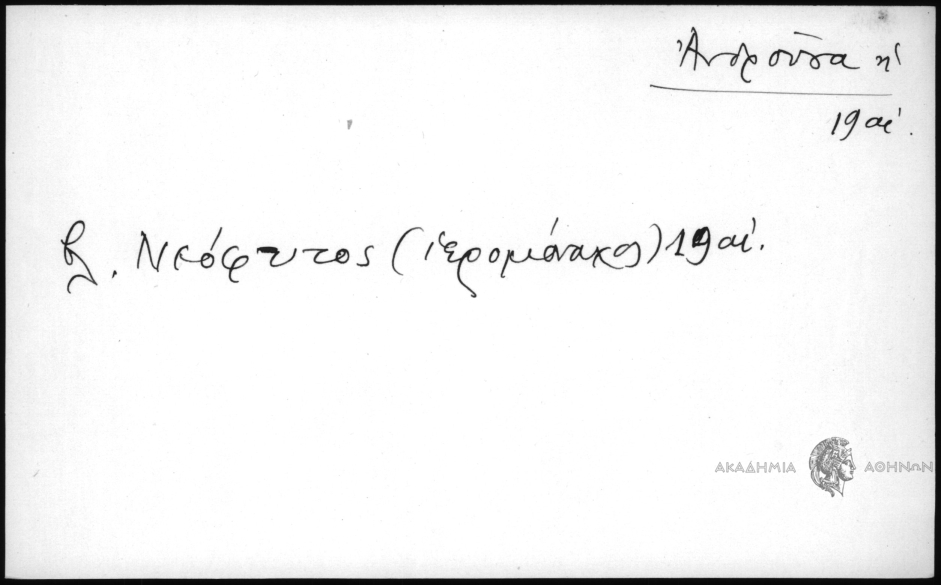 Ἀνδρούσα ἡ
19 αἰ.
βλ. Νεόφυτος (ἱερομόναχος) 19 αἰ.
ΑΚΑΔΗΜΙΑ ΑΘΗΝΩΝ